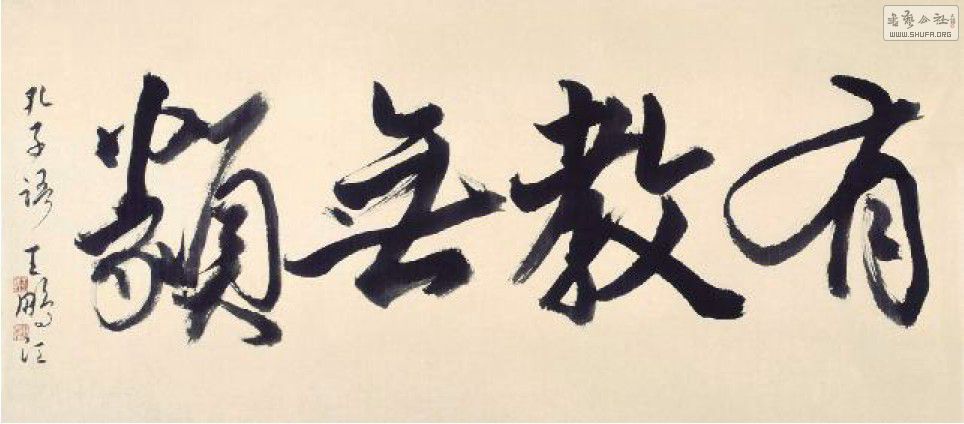 有教無類
孔子語 王鵬江
書藝公社
WWW.SHUFA.ORG